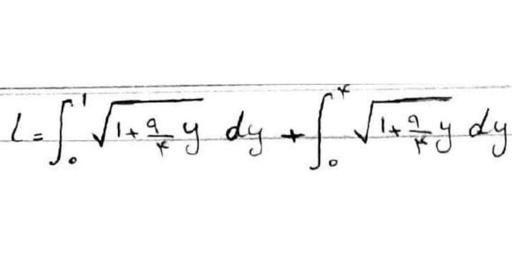 L = ∫₀¹ √(1+(9/۴)y) dy + ∫₀^۴ √(1+(9/۴)y) dy